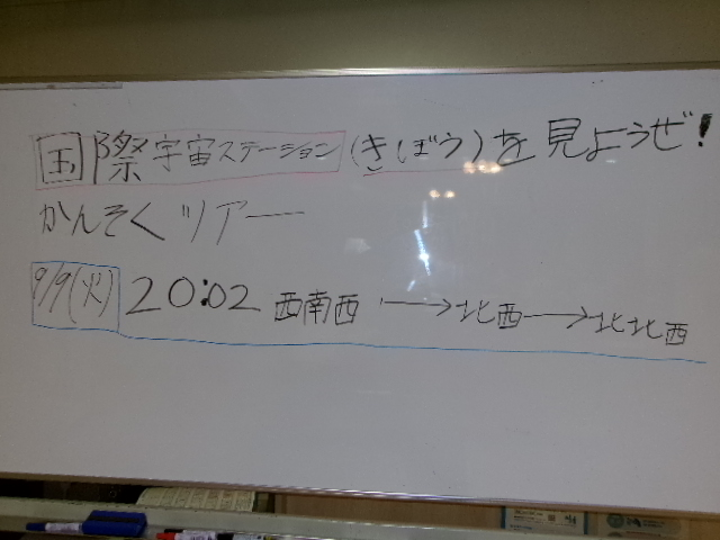 国際宇宙ステーション(きぼう)を見ようぜ!
かんそくツアー
9/9(火) 20:02 西南西 → 北西 → 北北西